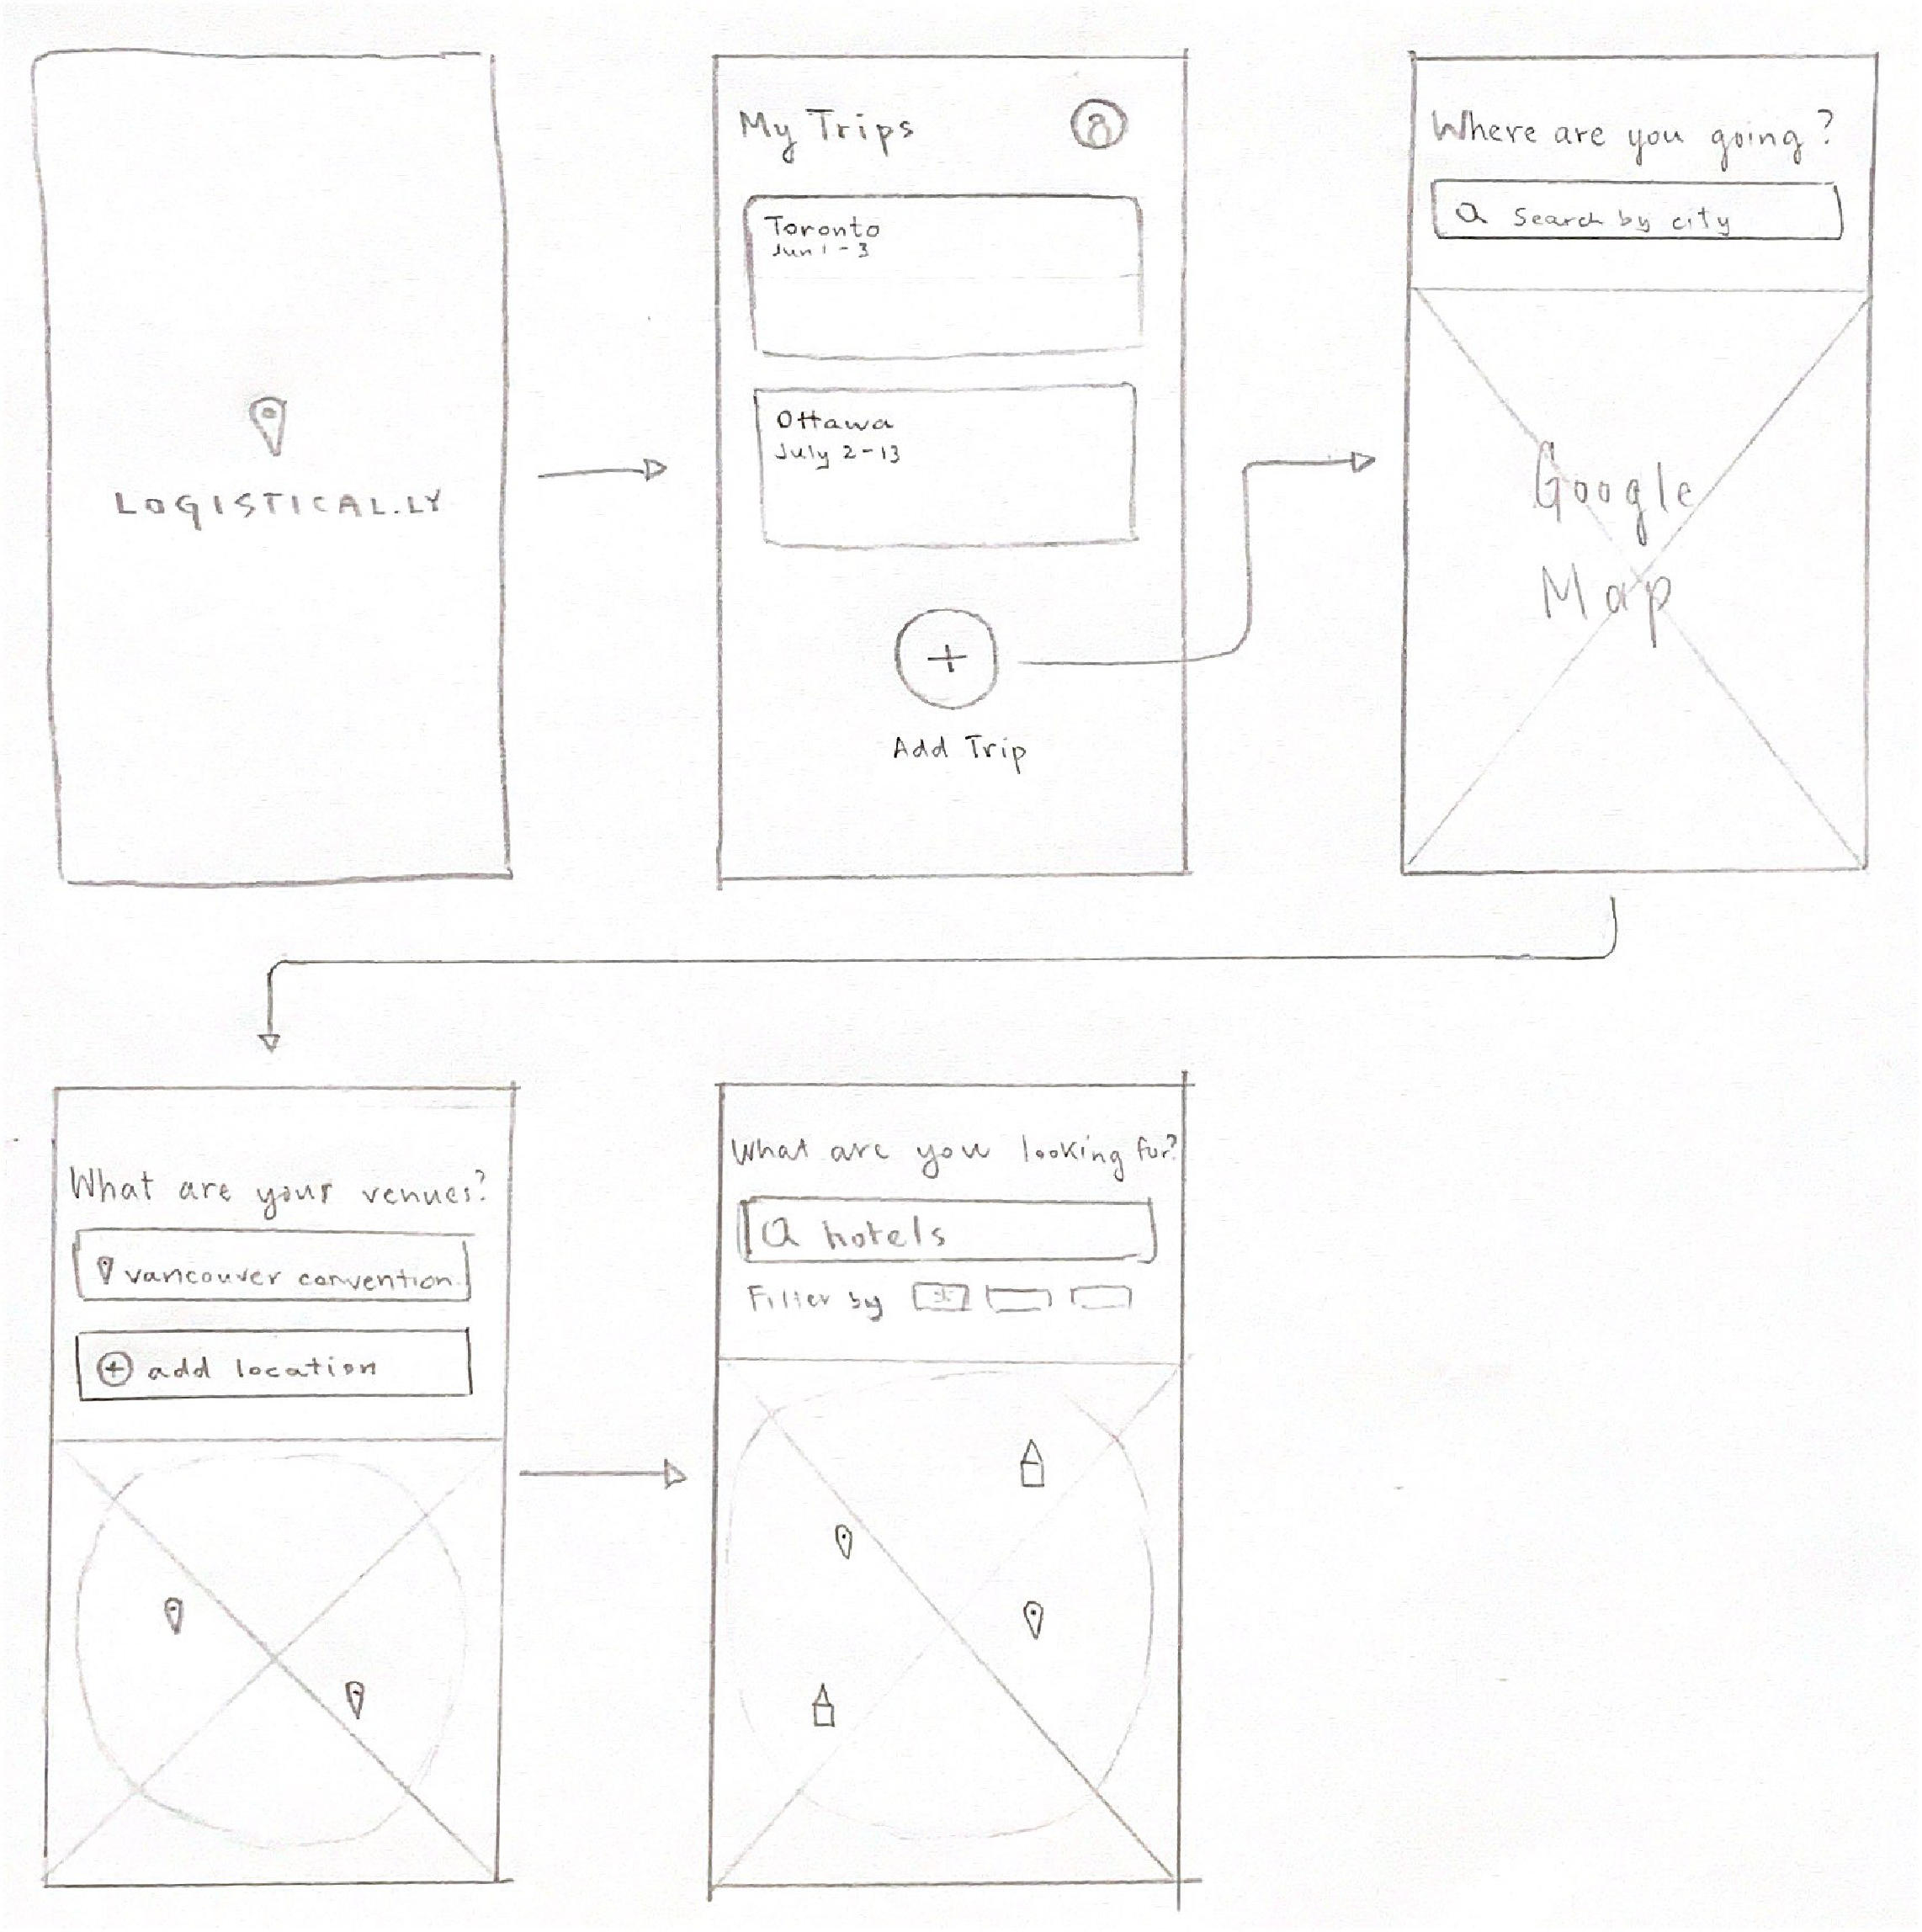 LOGISTICAL.LY
My Trips
Toronto
Jun 1-3
Ottawa
July 2-13
Add Trip
Where are you going?
Search by city
Google
Map
What are your venues?
vancouver convention
add location
What are you looking for?
hotels
Filter by